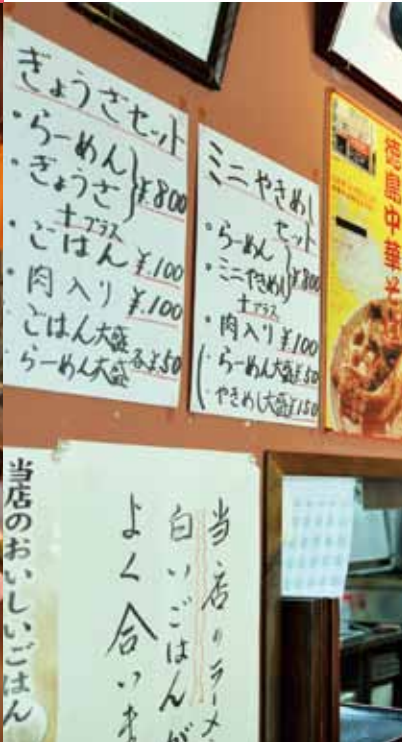 ぎょうざセット
・らーめん
・ぎょうざ
¥800
+プラス
・ごはん ¥.100
・肉入り ¥.100
・ごはん大盛
・らーめん大盛 各¥.50
ミニやきめし
セット
・らーめん
・ミニやきめし
¥800
+プラス
・肉入り ¥100
・らーめん大盛 ¥50
・やきめし大盛 ¥150
徳島中華そば
当店のおいしいごはん
当店のラーメ
白いごはんが
よく合いま